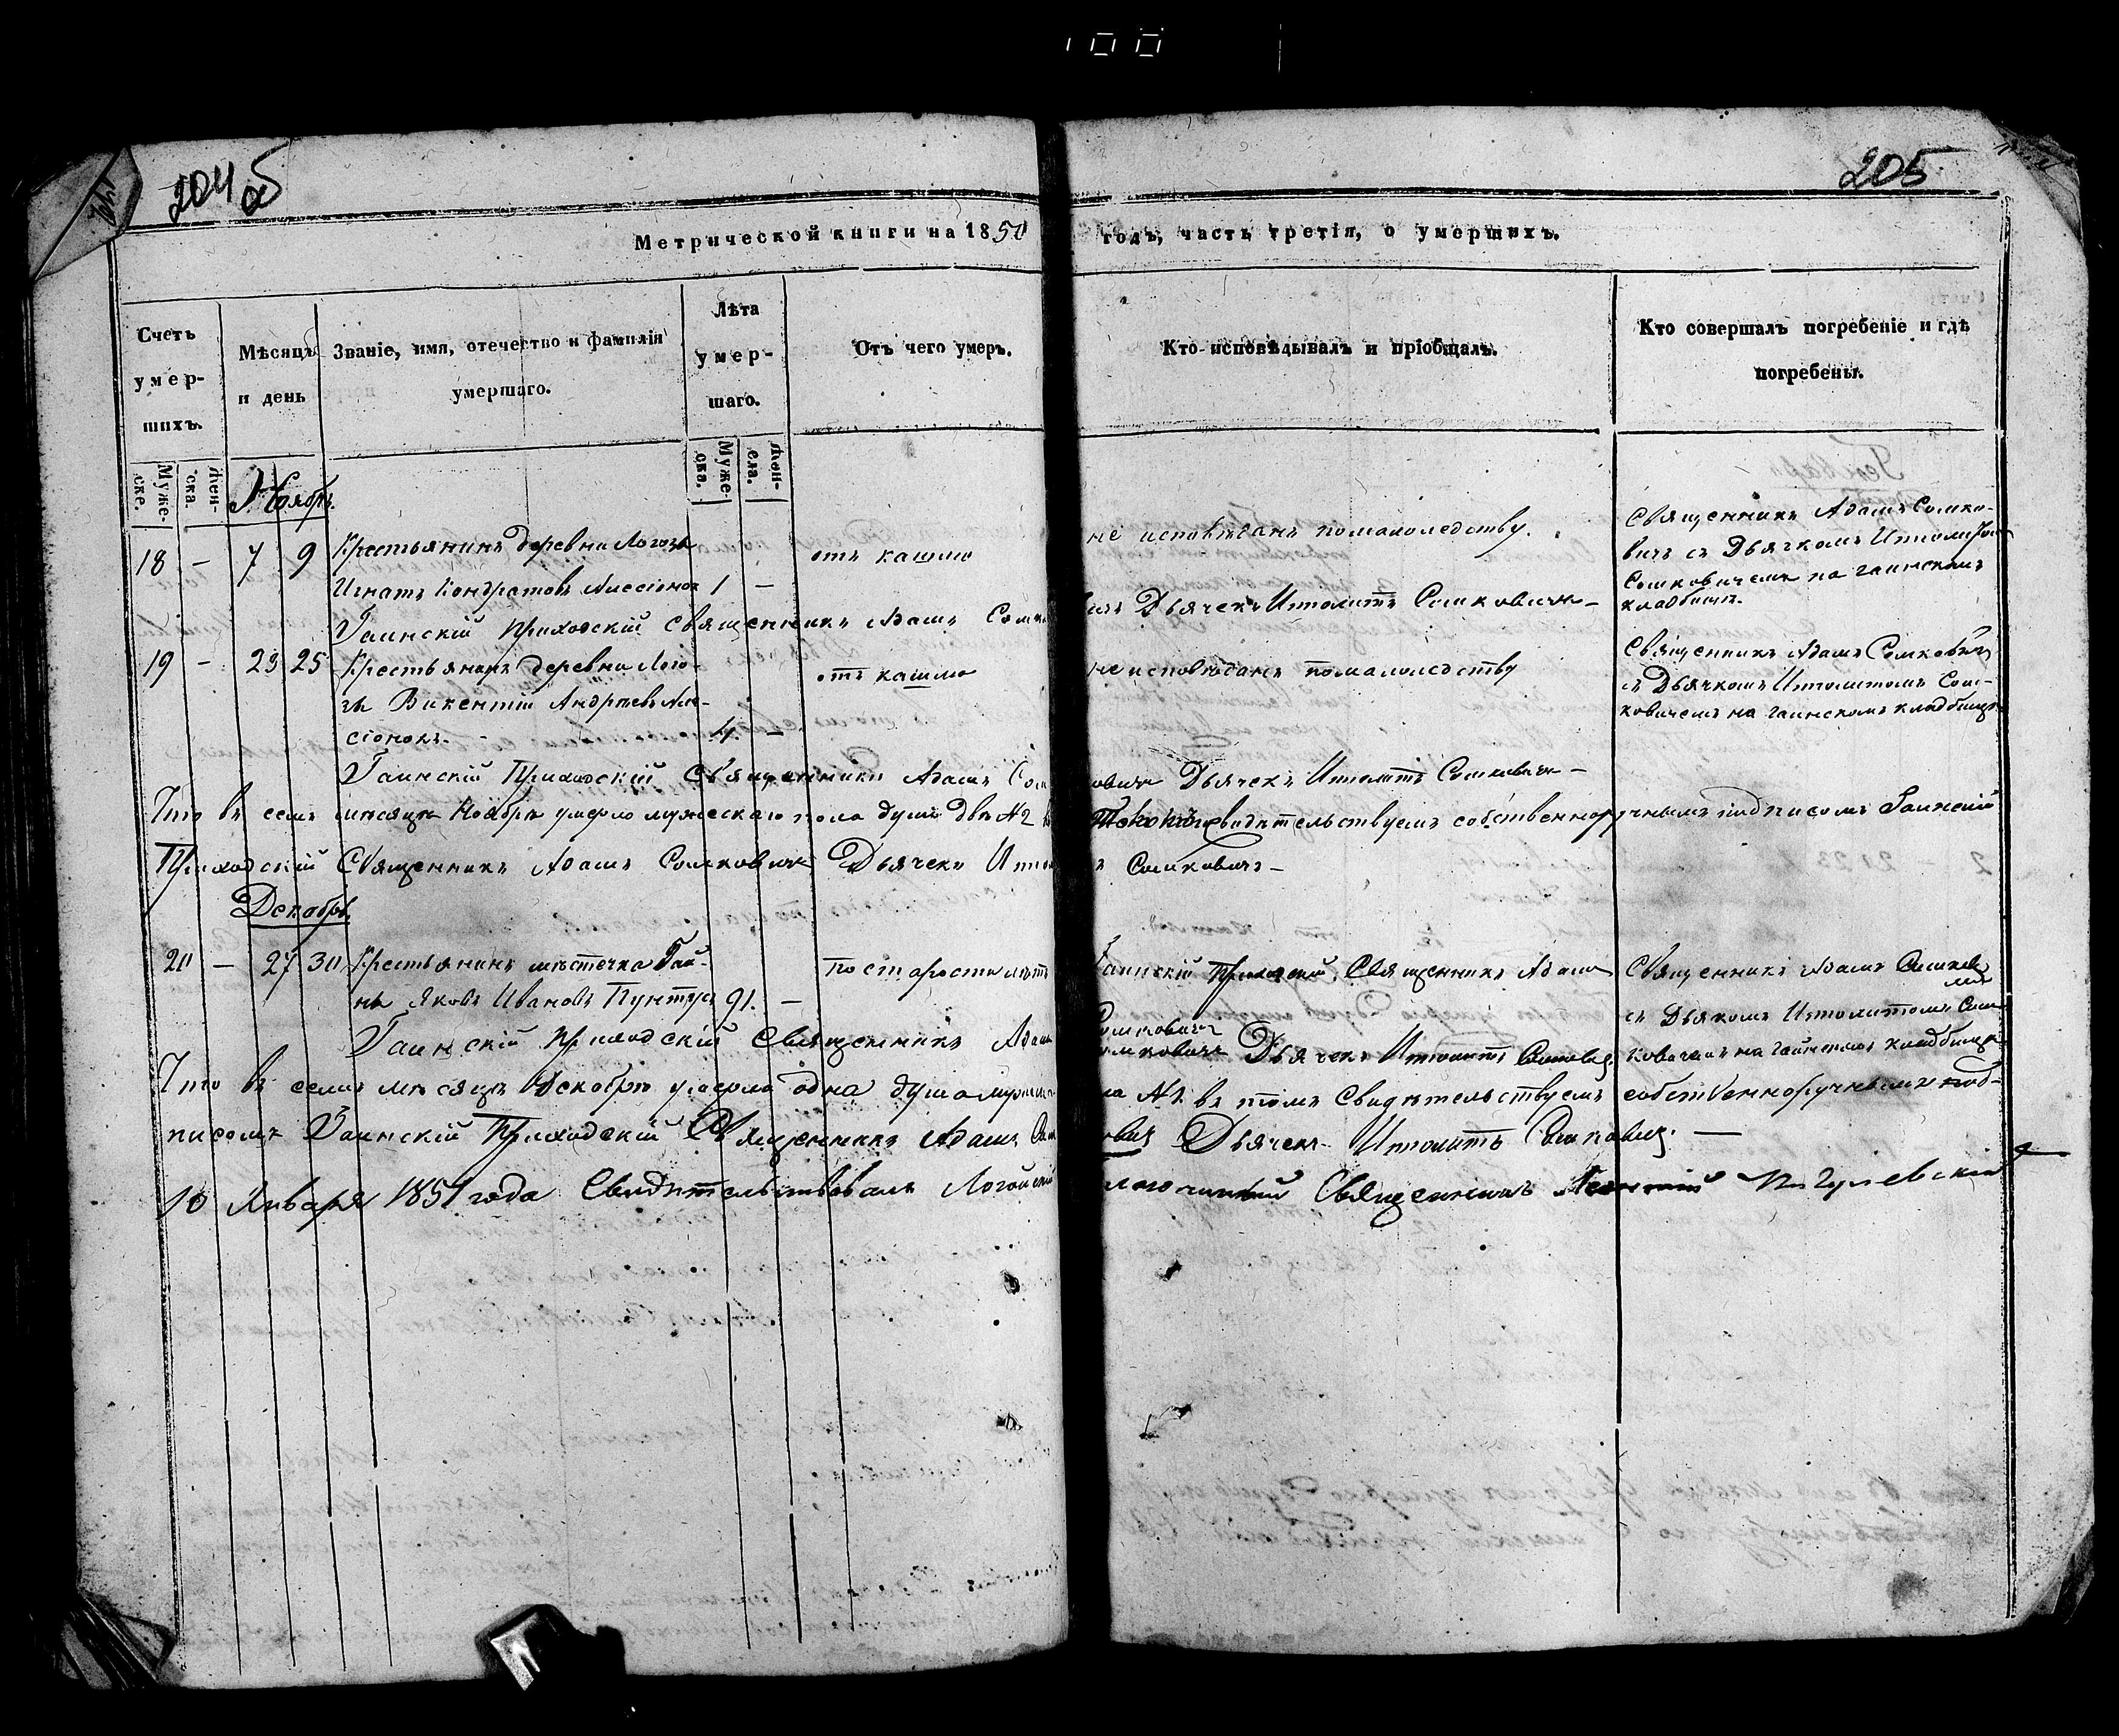 100
204 об
205
Метрической книги на 1850 годъ, часть третія, о умершихъ.
Счетъ умер-шихъ.
Муже-ске.
Жен-ска.
Мѣсяцъ и день
Званіе, имя, отечество и фамилія умершаго.
Лѣта умер-шаго.
Муже-ска.
Жен-ска.
Отъ чего умеръ.
Кто исповѣдывалъ и пріобщалъ.
Кто совершалъ погребеніе и гдѣ погребены.
Ноябрь.
18 – 7 9 Крестьянинъ деревни Логозы
Игнатъ Кондратовъ 1 –
отъ кашлю
не исповѣданъ помалолѣдству.
Священникъ Адамъ Сомко-
вичъ съ Дьячкомъ
Сомковичемъ на гаинскомъ
кладбищѣ.
Гаинскій Приходскій Священникъ Адамъ Дьячекъ Ипполитъ Сомковичъ –
19 – 23 25 Крестьянинъ деревни Лого-
зы Викентій Андреевъ
сіонокъ. 4 –
отъ кашлю
не исповѣданъ помалолѣдству
Священникъ Адамъ Сомковичъ
съ Дьячкомъ Ипполитомъ Сом-
ковичемъ на гаинскомъ кладбищѣ
Гаинскій Приходскій Священникъ Адамъ Дьячекъ Ипполитъ Сомковичъ –
Что въ семъ мѣсяцѣ Ноябрѣ умерло мужескаго пола душъ двѣ №2 свидѣтельствуемъ собственноручнымъ подписомъ Гаинскій
Приходскій Священникъ Адамъ Сомковичъ Дьячекъ Сомковичъ –
Декабрь.
20 – 27 30 Крестьянинъ мѣстечка Гай-
ны Яковъ Ивановъ Пунтусъ 91. –
по старости лѣтъ
Гаинскій Приходскій Священникъ Адамъ
Сомковичъ
Священникъ Адамъ
съ Дьякомъ Ипполитомъ Сом-
ковичемъ на гайнскомъ кладбищѣ
Гаинскій Приходскій Священникъ Адамъ Сомковичъ Дьячекъ Ипполитъ Сомковичъ.
Что въ семъ мѣсяцѣ Декабрѣ умерла одна душа №1. въ томъ Свидѣтельствуемъ собственноручнымъ под-
писомъ Гаинскій Приходскій Священникъ Адамъ Дьячекъ Ипполитъ Сомковичъ. –
10 Января 1851 года Свидѣтельствовалъ Логойскій Благочинный Священникъ